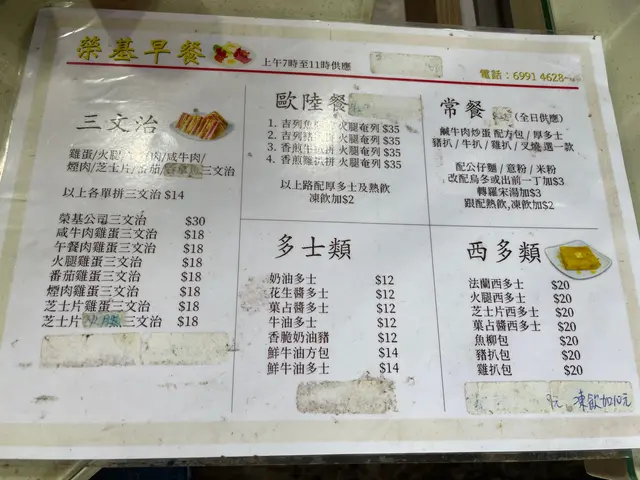 榮基早餐
上午7時至11時供應
電話：6991 4628
三文治
雞蛋/火腿/ 肉/咸牛肉/
煙肉/芝士片/ 茄/ 三文治
以上各單拼三文治 $14
榮基公司三文治 $30
咸牛肉雞蛋三文治 $18
午餐肉雞蛋三文治 $18
火腿雞蛋三文治 $18
番茄雞蛋三文治 $18
煙肉雞蛋三文治 $18
芝士片雞蛋三文治 $18
芝士片火腿三文治 $18
歐陸餐
1. 吉列魚 火腿奄列 $35
2. 吉列豬 火腿奄列 $35
3. 香煎 拼 火腿奄列 $35
4. 香煎雞扒拼 火腿奄列 $35
以上路配厚多士及熱飲
凍飲加$2
常餐 (全日供應)
鹹牛肉炒蛋 配方包 / 厚多士
豬扒 / 牛扒 / 雞扒 / 叉燒 選一款
配公仔麵 / 意粉 / 米粉
改配烏冬或出前一丁加$3
轉羅宋湯加$3
跟配熱飲,凍飲加$2
多士類
奶油多士 $12
花生醬多士 $12
菓占醬多士 $12
牛油多士 $12
香脆奶油豬 $12
鮮牛油方包 $14
鮮牛油多士 $14
西多類
法蘭西多士 $20
火腿西多士 $20
芝士片西多士 $20
菓占醬西多士 $20
魚柳包 $20
豬扒包 $20
雞扒包 $20
元 凍飲加10元